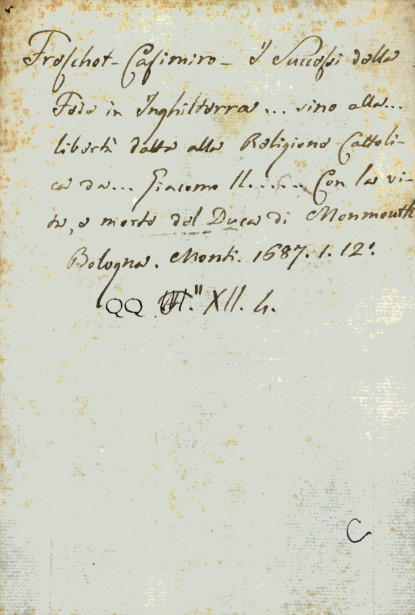 Freschot - Casimiro - I Successi della
Fede in Inghilterra ... sino alla ...
libertà data alla Religione Cattoli-
ca da ... Giacomo II. ..... Con la vi-
ta, e morte del Duca di Monmouth
Bologna. Monti. 1687. 1. 12.°
QQ XII. 4.
C